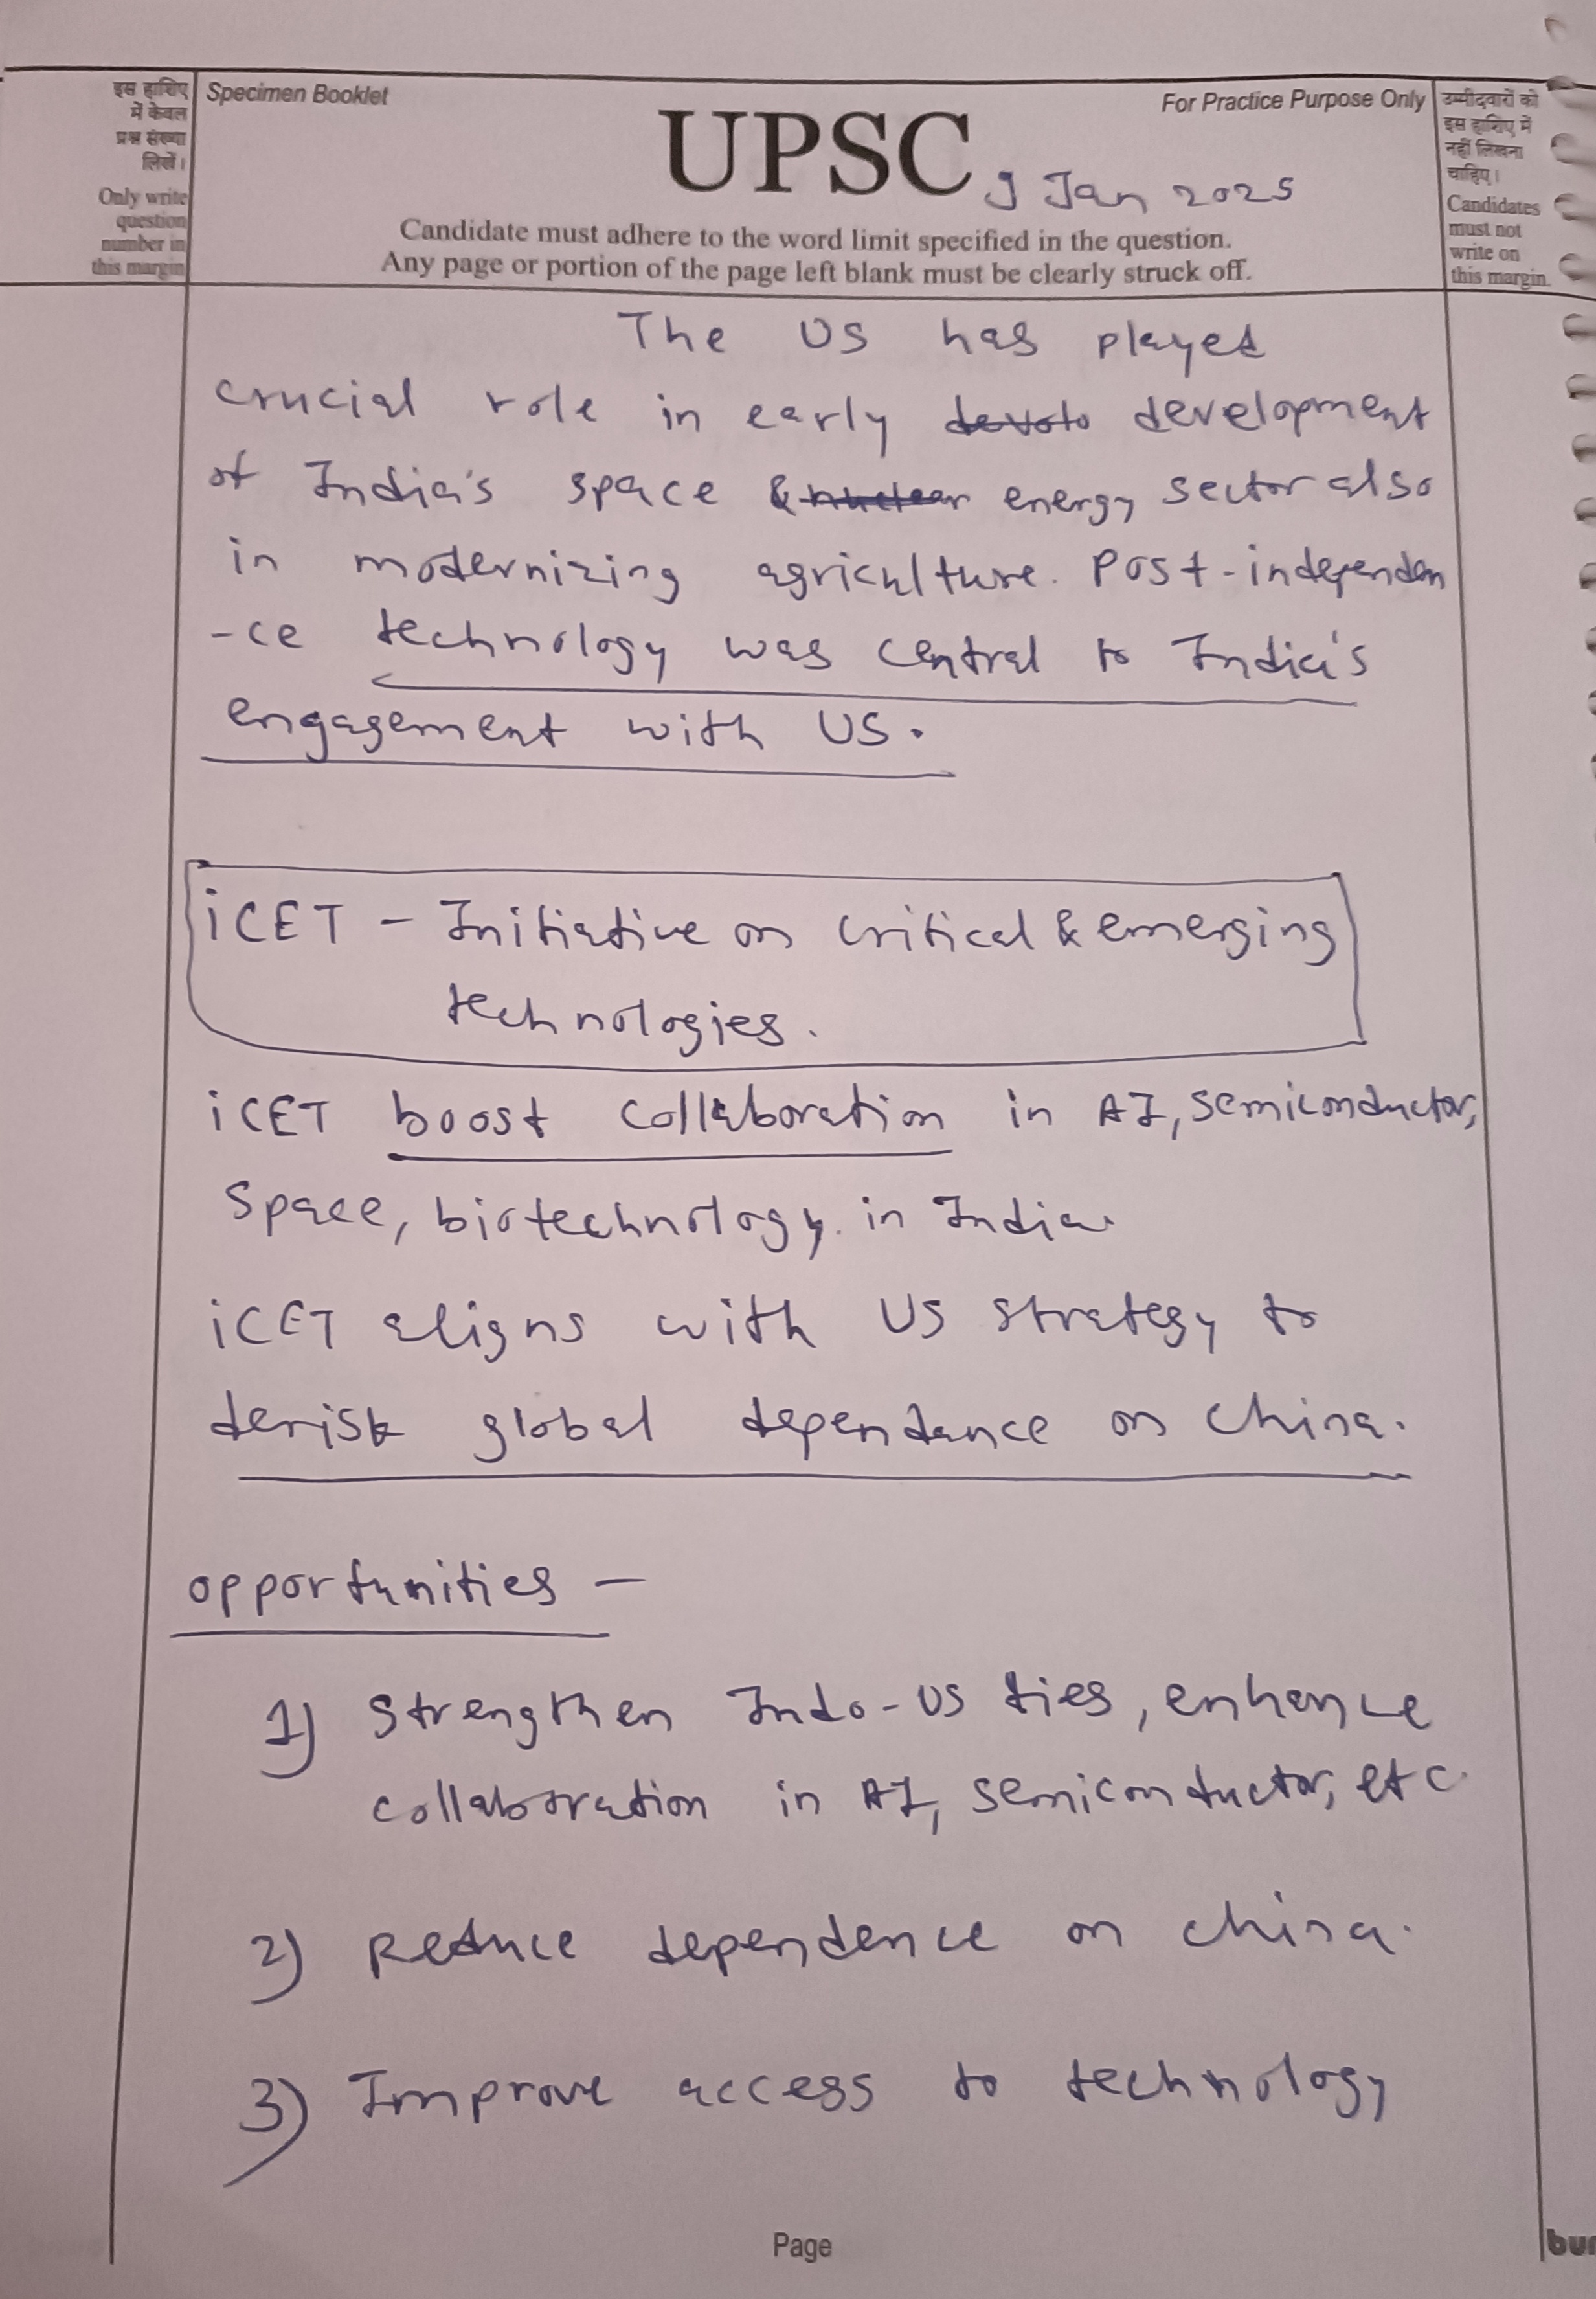 इस हाशिए
में केवल
प्रश्न संख्या
लिखें।
Only write
question
number in
this margin
Specimen Booklet
For Practice Purpose Only
UPSC
Jan 2025
Candidate must adhere to the word limit specified in the question.
Any page or portion of the page left blank must be clearly struck off.
उम्मीदवारों को
इस हाशिए में
नहीं लिखना
चाहिए।
Candidates
must not
write on
this margin.
The US has played
crucial role in early development
of India's space & energy sector also
in modernizing agriculture. Post-independen
-ce technology was central to India's
engagement with US.
iCET - Initiative on critical & emerging
technologies.
iCET boost collaboration in AI, semiconductor,
space, biotechnology in India.
iCET aligns with US strategy to
derisk global dependance on china.
opportunities -
1) strengthen Indo-US ties, enhance
collaboration in AI, semiconductor, etc.
2) Reduce dependence on china.
3) Improve access to technology
Page